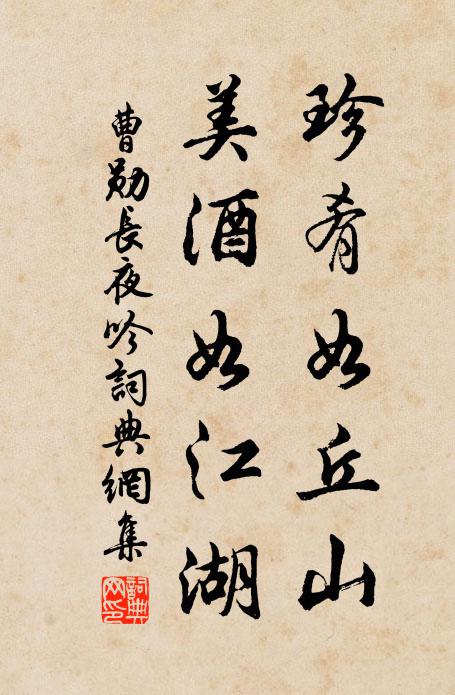 珍肴如丘山
美酒如江湖
曹勛長夜吟詞典網集
詞典网印